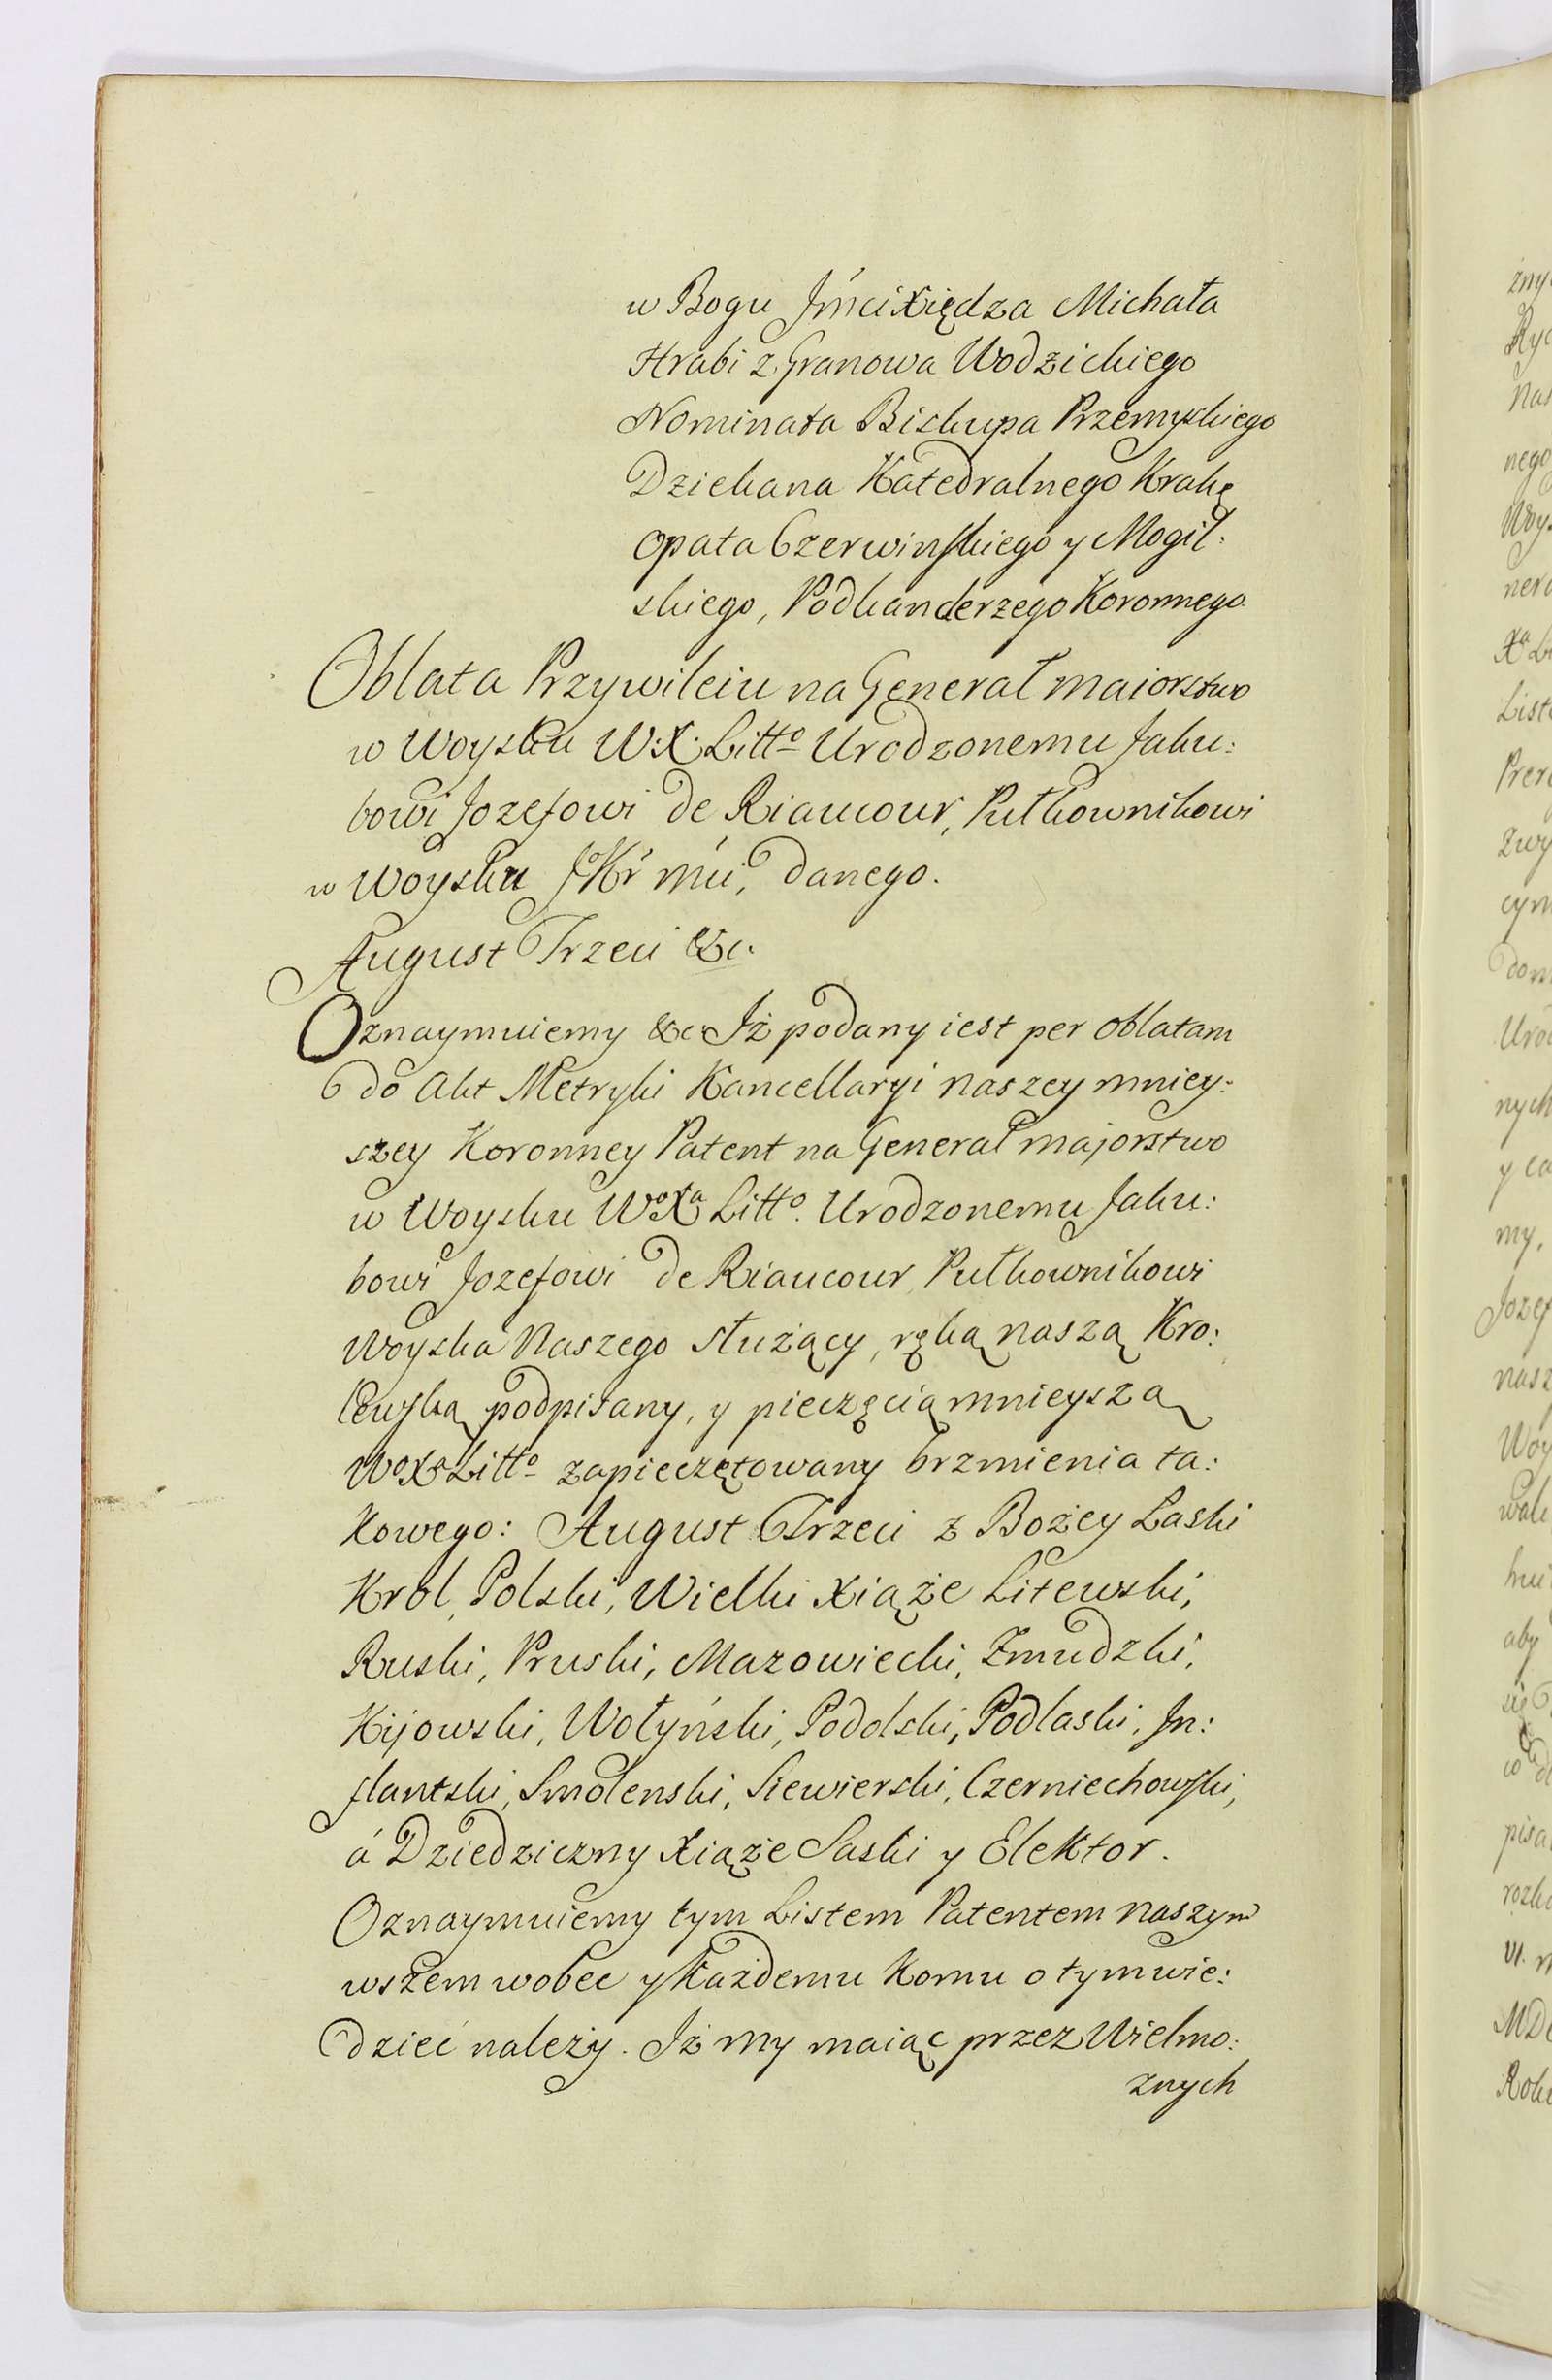 w Bogu Jmći Xiędza Michała
Hrabi z Granowa Wodzickiego
Nominata Biskupa Przemyskiego
Dziekana Katedralnego Krakę
Opata Czerwinskiego y Mogil:
skiego, Podkanclerzego Koronnego
Oblata Przywileiu na Generał maiorstwo
w Woysku W: X: Litto Urodzonemu Jaku:
bowi Jozefowi de Riaucour, Pułkownikowi
w Woysku JKr mći, danego.
August Trzeci &c.
Oznaymuiemy &c. Iż podany iest per oblatam
do Akt Metryki Kancellaryi naszey mniey:
szey Koronney Patent na Generał majorstwo
w Woysku Wo Xa Litto. Urodzonemu Jaku:
bowi Jozefowi de Riaucour Pułkownikowi
Woyska Naszego służący, ręką naszą Kro:
lewską podpisany, y pieczęcią mnieyszą
Wo Xa Litto zapieczętowany brzmienia ta:
kowego: August Trzeci z Bożey Laski
Krol Polski, Wielki Xiąże Litewski,
Ruski, Pruski, Mazowiecki, Zmudzki,
Kijowski, Wołyński, Podolski, Podlaski, In:
flantski, Smolenski, Siewierski, Czerniechowski,
á Dziedziczny Xiąże Saski y Elektor.
Oznaymuiemy tym Listem Patentem naszym
wszem wobec y każdemu komu o tym wie:
dzieć należy. Iż my maiąc przez Wielmo:
znych